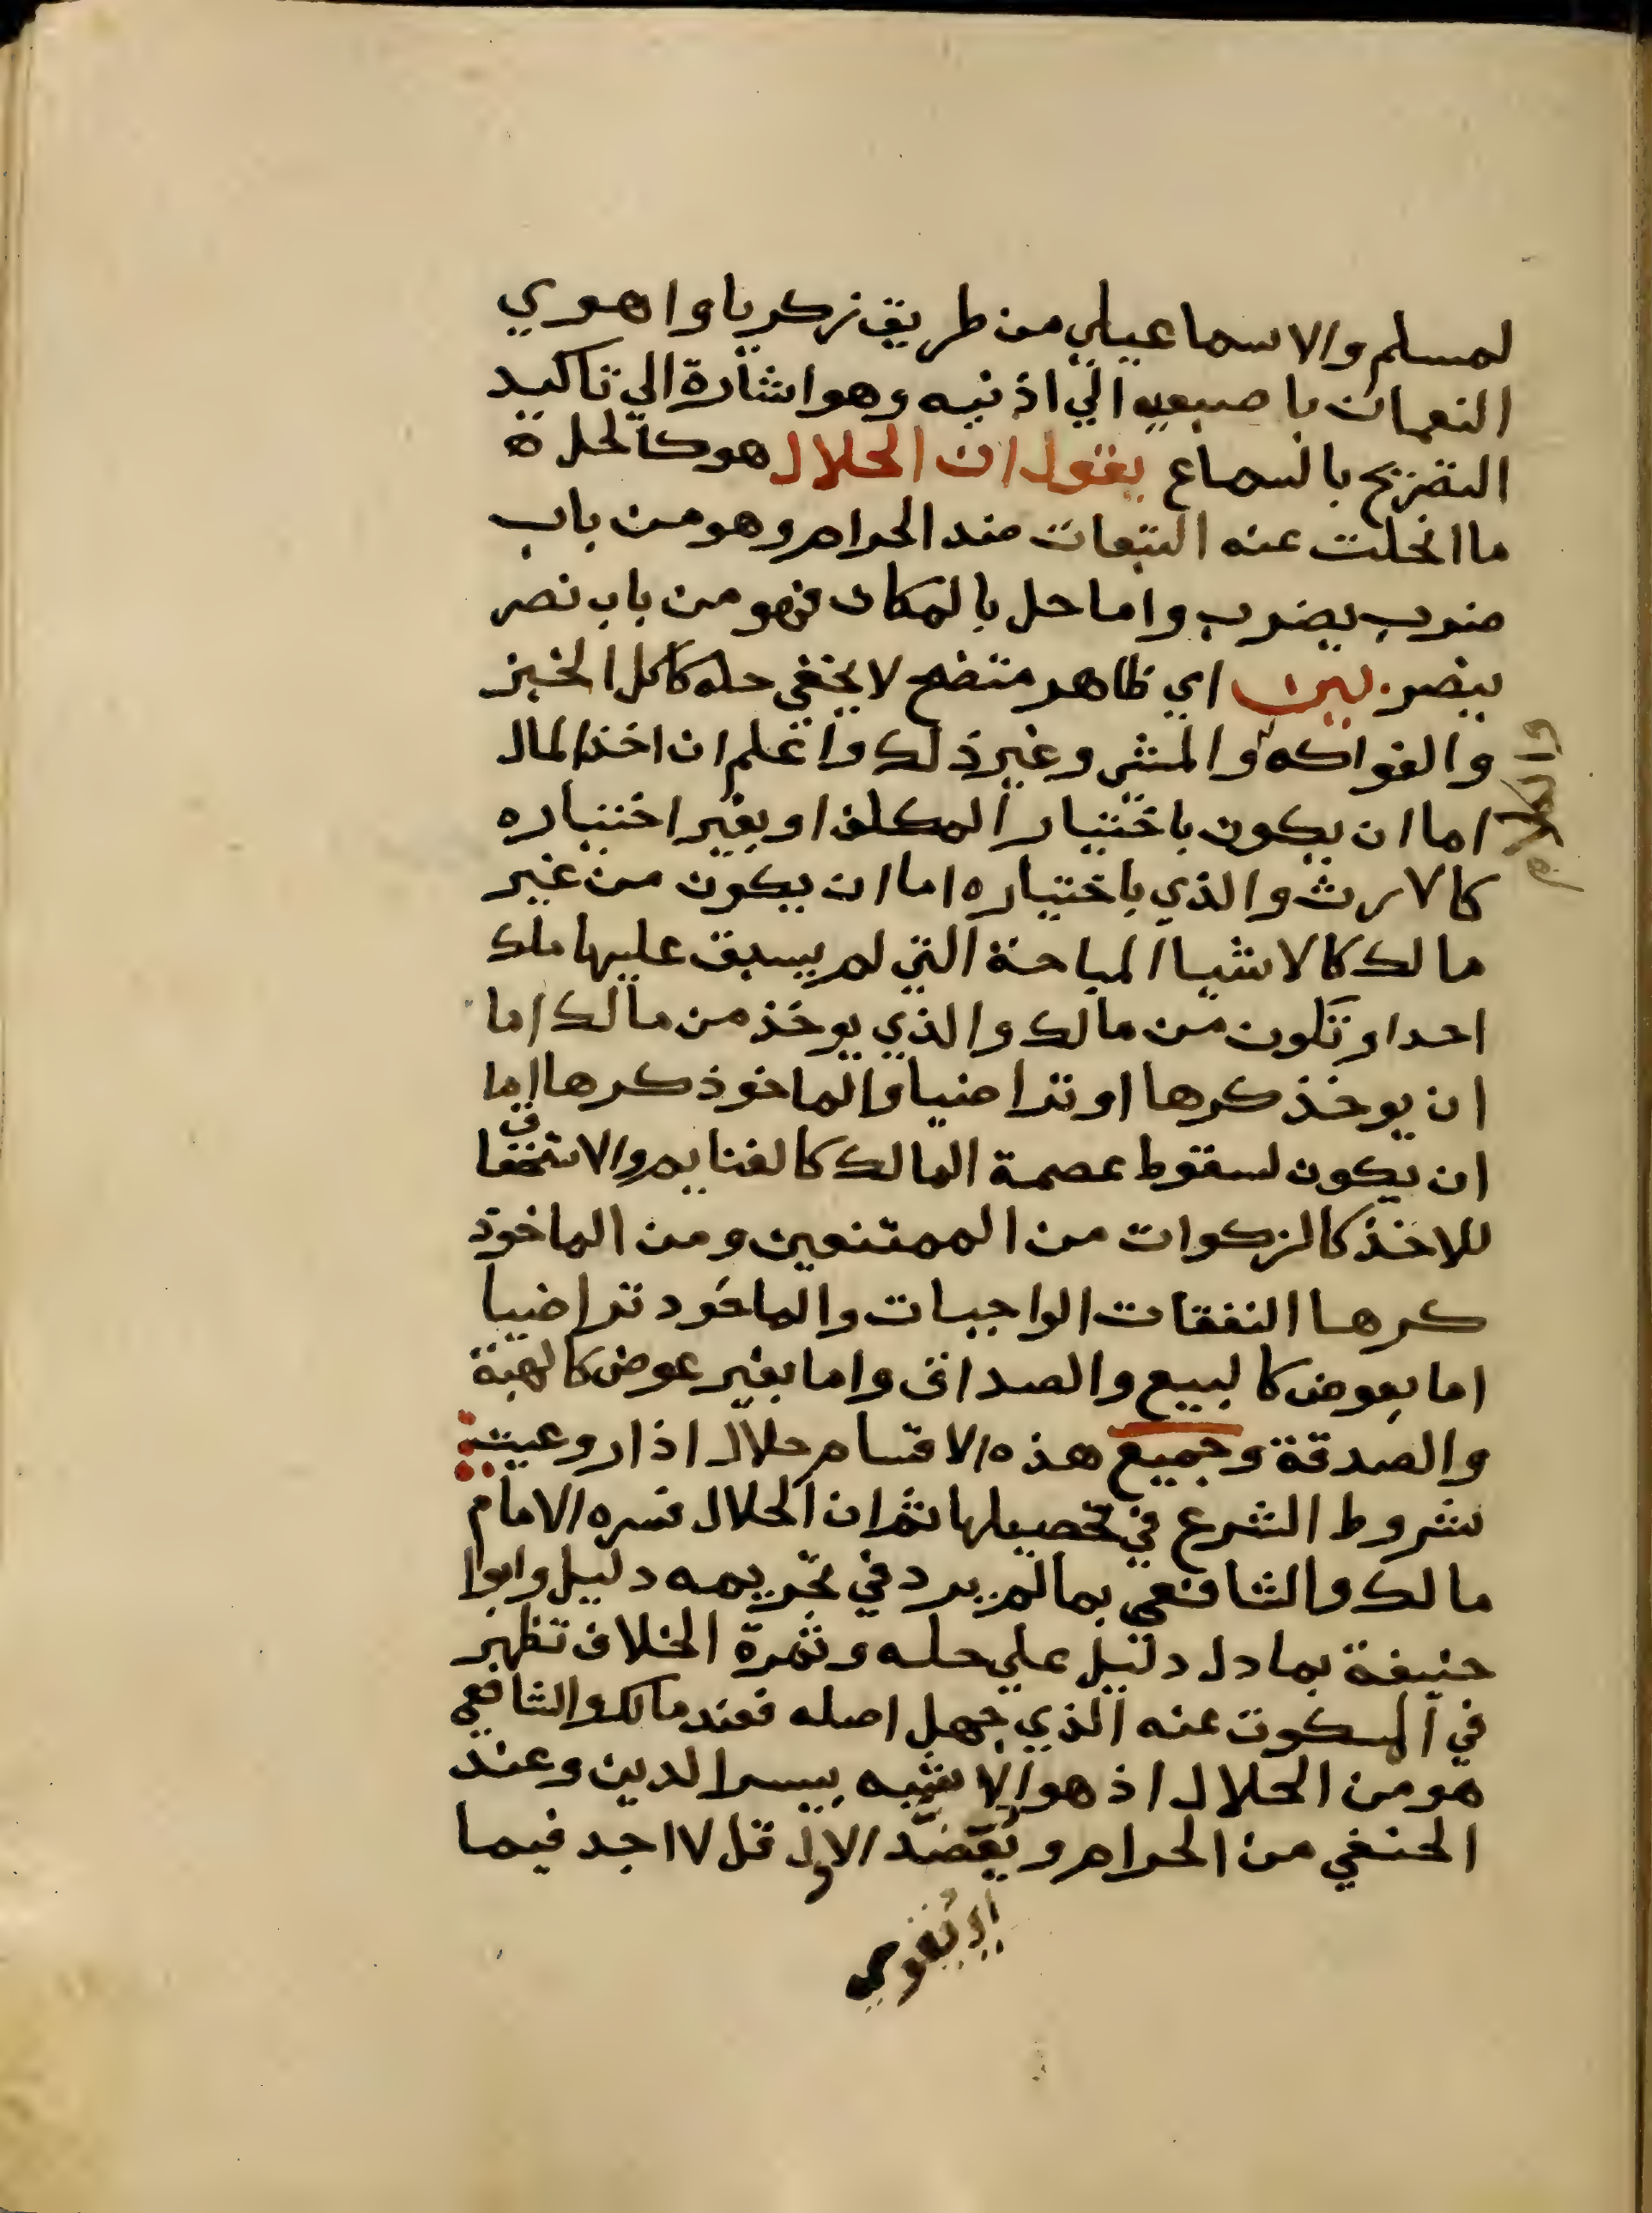 لمسلم والاسماعيلي من طريق زكريا واهوي
النعمان باصبعيه الي اذنيه وهو اشارة الي تاكيد
التصريح بالسماع يقول ان الحلال هو كالحل ه
ما انحلت عنه التبعات ضد الحرام وهو من باب
ضرب يضرب واما حل بالمكان فهو من باب نصر
ينصر بين اي ظاهر متضح لا يخفي حله كاكل الخبز
والفواكه والمشي وغير ذلك واعلم ان اخذ المال
والكلام
اما ان يكون باختيار المكلف او بغير اختياره
كالارث والذي باختياره اما ان يكون من غير
مالك كالاشيا المباحة التي لم يسبق عليها ملك
احد او تكون من مالك والذي يوخذ من مالك اما
ان يوخذ كرها او تراضيا والماخوذ كرها اما
ان يكون لسقوط عصمة المالك كالغنايم والاستحقاق
للاخذ كالزكوات من الممتنعين ومن الماخوذ
كرها النفقات الواجبات والماخود تراضيا
اما بعوض كالبيع والصداق واما بغير عوض كالهبة
والصدقة وجميع هذه الاقسام حلال اذا روعيت
شروط الشرع في تحصيلها ثم ان الحلال فسره الامام
مالك والشافعي بما لم يرد في تحريمه دليل وابوا
حنيفة بما دل دليل علي حله وثمرة الخلاف تظهر
في المسكوت عنه الذي جهل اصله فعند مالك والشافعي
هو من الحلال اذ هو الاشبه بيسر الدين وعند
الحنفي من الحرام و الاول قل لا اجد فيما